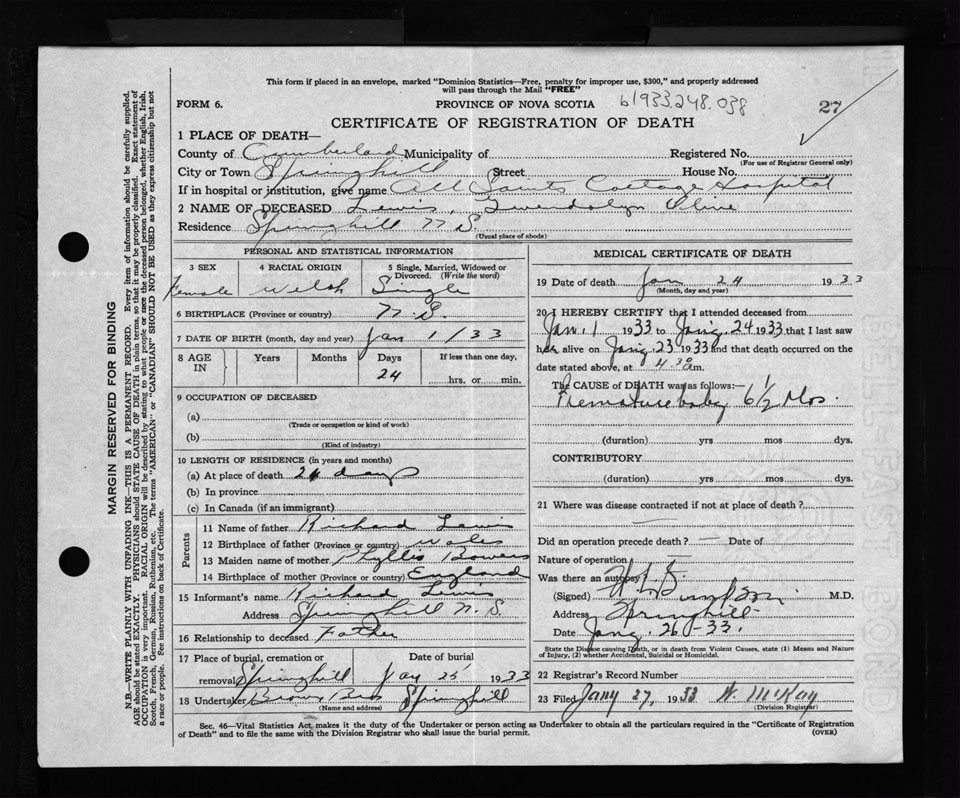 This form if placed in an envelope, marked "Dominion Statistics—Free, penalty for improper use, $300," and properly addressed
will pass through the Mail "FREE"
FORM 6. PROVINCE OF NOVA SCOTIA b1933.248.038 27
CERTIFICATE OF REGISTRATION OF DEATH
1 PLACE OF DEATH—
County of Cumberland Municipality of Registered No.
(For use of Registrar General only)
City or Town Springhill Street House No.
If in hospital or institution, give name All Saints Cottage Hospital
2 NAME OF DECEASED Lewis, Gwendolyn Olive
Residence Springhill N.S.
(Usual place of abode)
PERSONAL AND STATISTICAL INFORMATION
3 SEX 4 RACIAL ORIGIN 5 Single, Married, Widowed or
Divorced. (Write the word)
Female Welsh Single
6 BIRTHPLACE (Province or country) N.S.
7 DATE OF BIRTH (month, day and year) Jan 1/33
8 AGE IN Years Months Days If less than one day,
24 hrs. or min.
9 OCCUPATION OF DECEASED
(a)
(Trade or occupation or kind of work)
(b)
(Kind of industry)
10 LENGTH OF RESIDENCE (in years and months)
(a) At place of death 24 days
(b) In province
(c) In Canada (if an immigrant)
Parents
11 Name of father Richard Lewis
12 Birthplace of father (Province or country) Wales
13 Maiden name of mother Phyllis Bowens
14 Birthplace of mother (Province or country) England
15 Informant's name Richard Lewis
Address Springhill N.S.
16 Relationship to deceased Father
17 Place of burial, cremation or Date of burial
removal Springhill Jan 25 1933
18 Undertaker Brown Bros Springhill
(Name and address)
MEDICAL CERTIFICATE OF DEATH
19 Date of death Jan 24 1933
(Month, day and year)
20 I HEREBY CERTIFY that I attended deceased from
Jan. 1 1933 to Jany. 24 1933 that I last saw
her alive on Jany. 23 1933 and that death occurred on the
date stated above, at 4.30 a.m.
The CAUSE of DEATH was as follows:—
Premature baby 6½ Mos.
(duration) yrs mos dys.
CONTRIBUTORY
(duration) yrs mos dys.
21 Where was disease contracted if not at place of death?
Did an operation precede death? — Date of
Nature of operation
Was there an autopsy
(Signed) M.D.
Address Springhill
Date Jany. 26-33.
State the Disease causing Death, or in death from Violent Causes, state (1) Means and Nature
of Injury, (2) whether Accidental, Suicidal or Homicidal.
22 Registrar's Record Number
23 Filed Jany 27, 1933 W. McKay
(Division Registrar)
Sec. 46—Vital Statistics Act makes it the duty of the Undertaker or person acting as Undertaker to obtain all the particulars required in the "Certificate of Registration
of Death" and to file the same with the Division Registrar who shall issue the burial permit. (OVER)
MARGIN RESERVED FOR BINDING
N.B.—WRITE PLAINLY WITH UNFADING INK—THIS IS A PERMANENT RECORD. Every item of information should be carefully supplied.
AGE should be stated EXACTLY. PHYSICIANS should STATE CAUSE OF DEATH in plain terms, so that it may be properly classified. Exact statement of
OCCUPATION is very important. RACIAL ORIGIN will be described by stating to what people or race the deceased person belonged, whether English, Irish,
Scotch, French, German, Russian, Ruthenian, etc. The terms "AMERICAN" or "CANADIAN" SHOULD NOT BE USED as they express citizenship but not
a race or people. See instructions on back of Certificate.